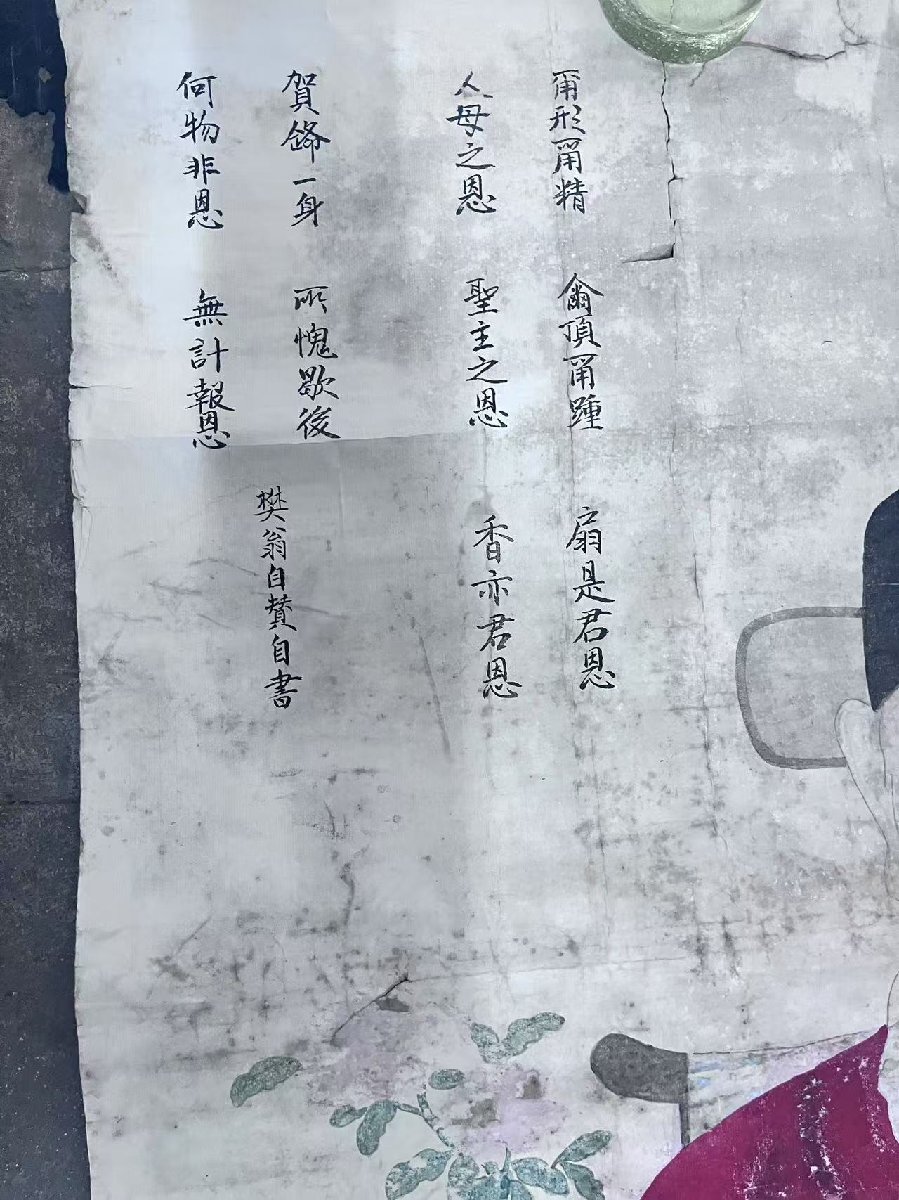 爾形爾精 爾頂爾踵 扇是君恩
父母之恩 聖主之恩 香亦君恩
賀 一身 所愧歇後
何物非恩 無計報恩
樊翁自贊自書